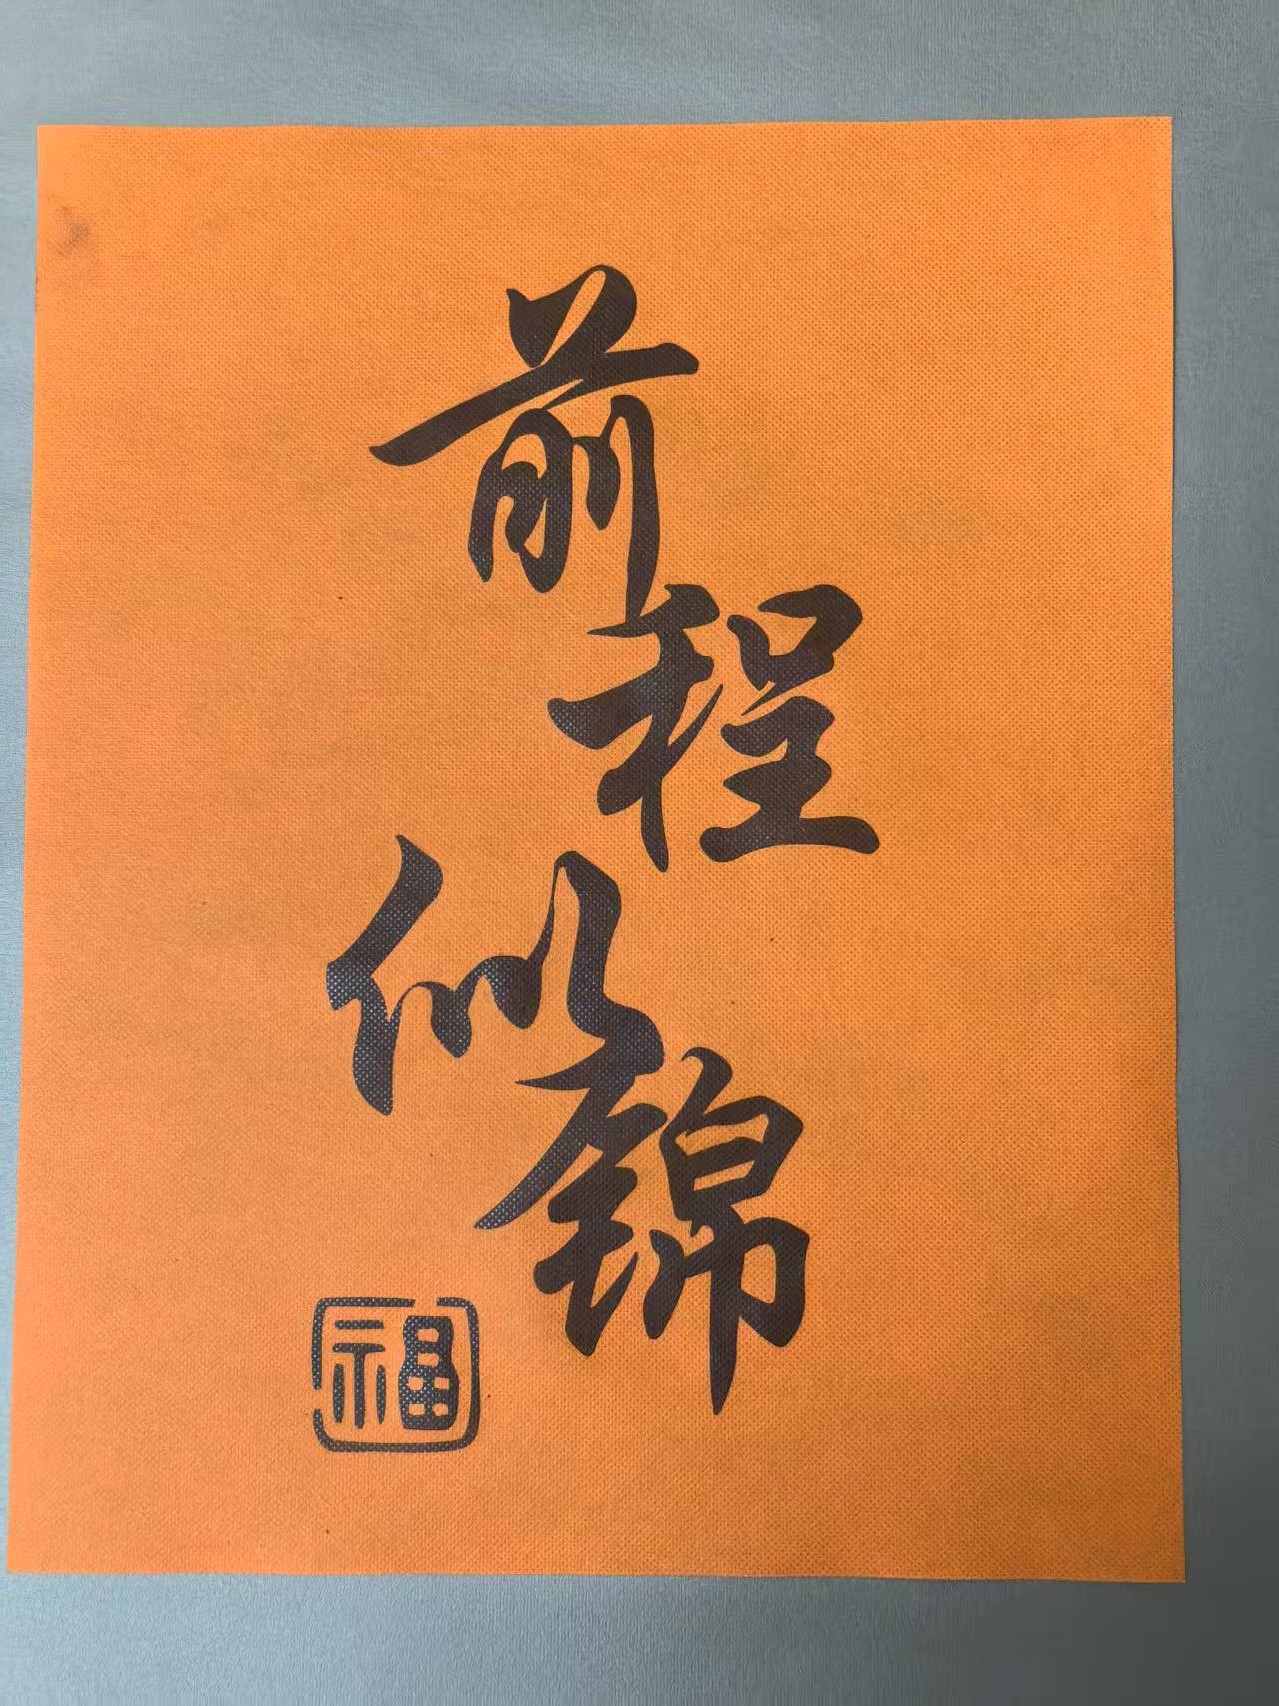 前程
似锦
福